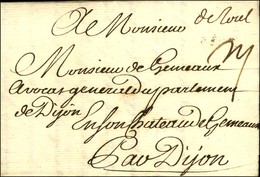 A Monsieur
de Toul
Monsieur de Gemeaux
Avocat general du parlement
de Dijon
En son Chateau de Gemeaux
Par Dijon